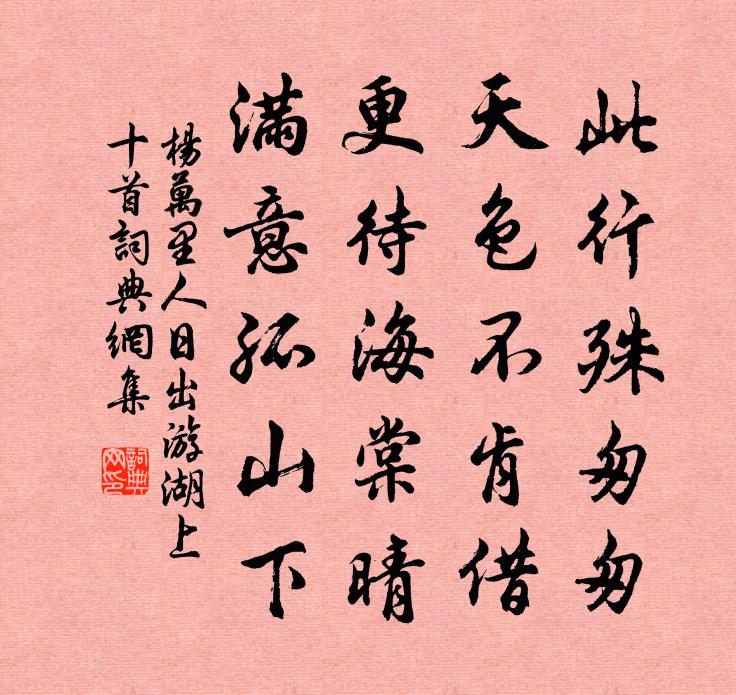 此行殊匆匆
天色不肯借
更待海棠晴
滿意孤山下
楊萬里人日出游湖上
十首詞典網集
詞典
网印